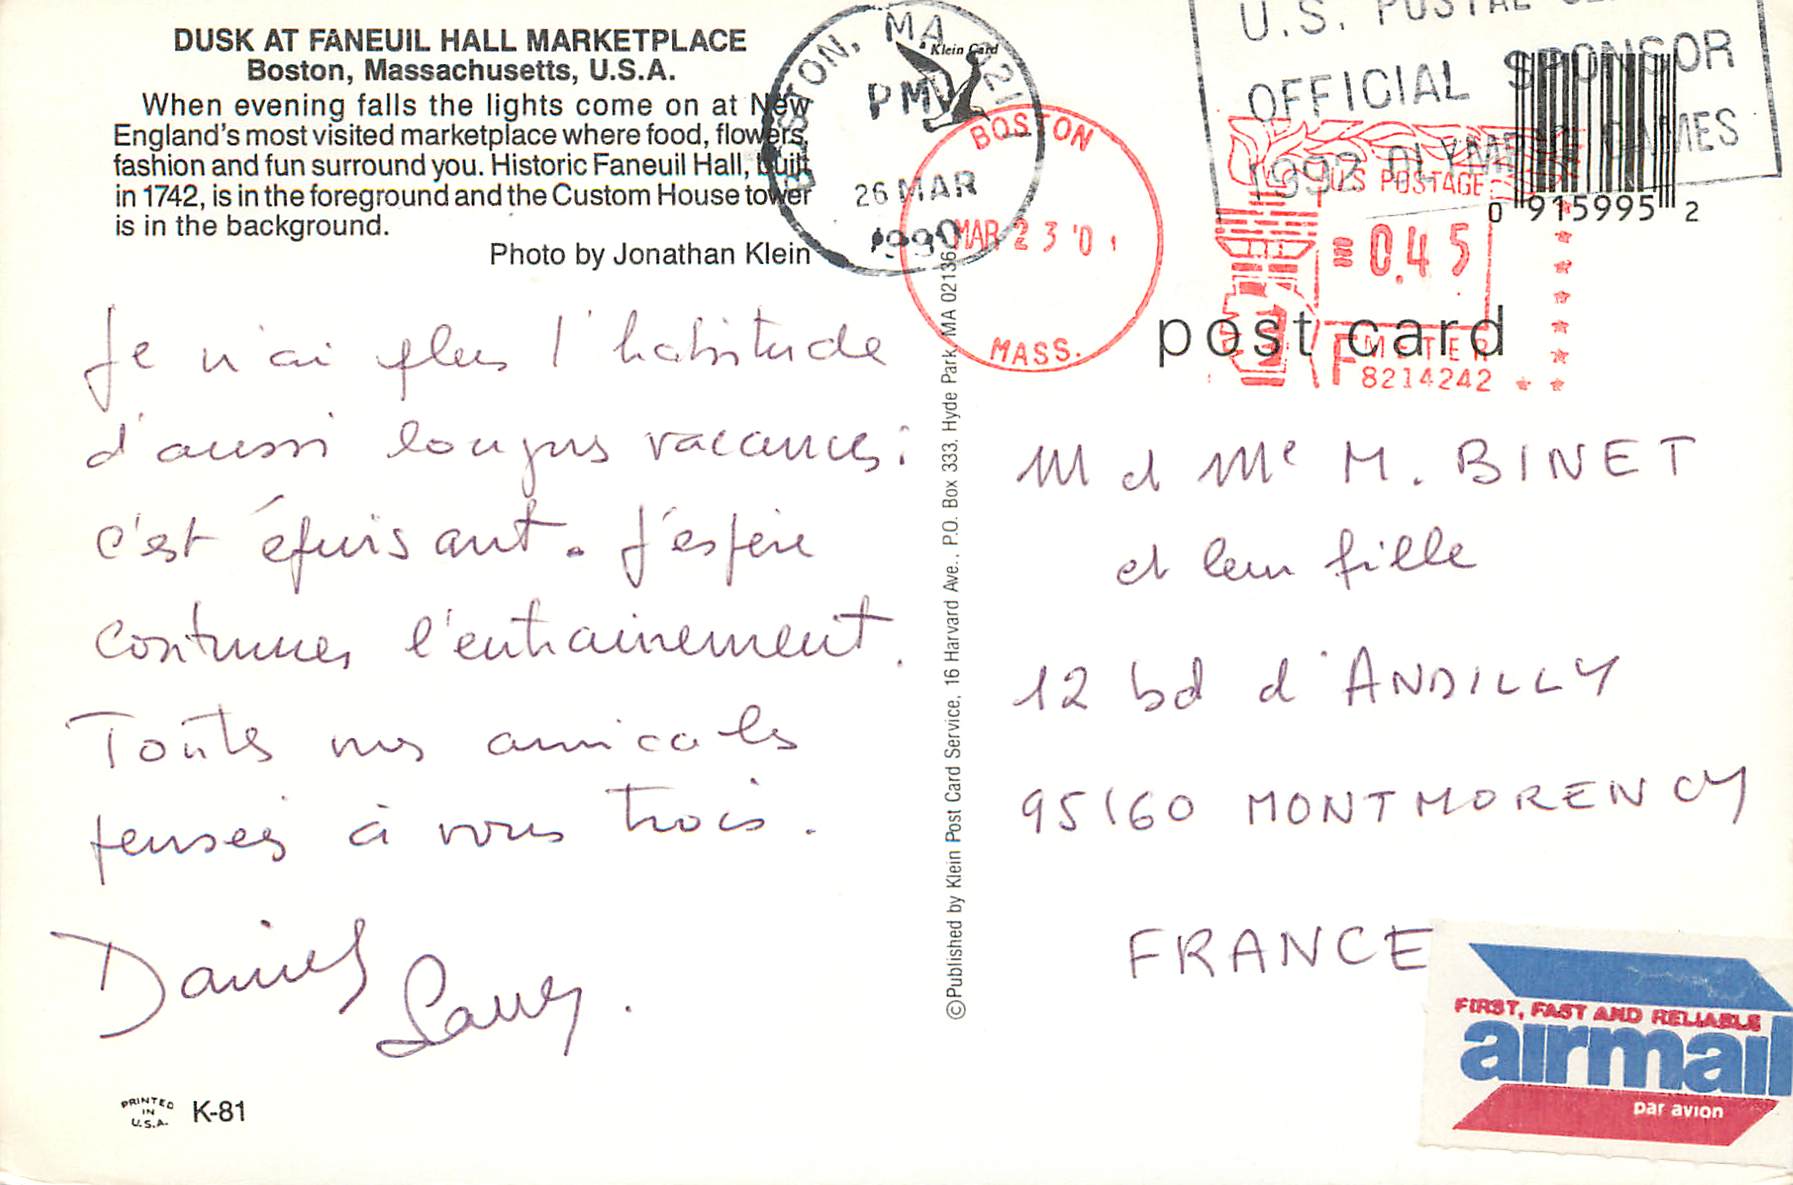 DUSK AT FANEUIL HALL MARKETPLACE
Boston, Massachusetts, U.S.A.
When evening falls the lights come on at New
England's most visited marketplace where food, flowers,
fashion and fun surround you. Historic Faneuil Hall, built
in 1742, is in the foreground and the Custom House tower
is in the background.
Photo by Jonathan Klein
Klein Card
BOSTON, MA 021
PM
26 MAR
1990
BOSTON
MAR 23 '0
MASS.
U.S. POSTAL
OFFICIAL SPONSOR
1992 OLYMPIC GAMES
U.S. POSTAGE
0.45
METER
8214242
0 915995 2
post card
Je n'ai plus l'habitude
d'aussi longues vacances :
c'est épuisant. J'espère
continuer l'entrainement.
Toutes nos amicales
pensées à vous trois.
Daniel
©Published by Klein Post Card Service, 16 Harvard Ave., P.O. Box 333, Hyde Park, MA 02136
M et Me M. BINET
et leur fille
12 bd d'ANDILLY
95160 MONTMORENCY
FRANCE
FIRST, FAST AND RELIABLE
airmail
par avion
PRINTED
IN
U.S.A.
K-81